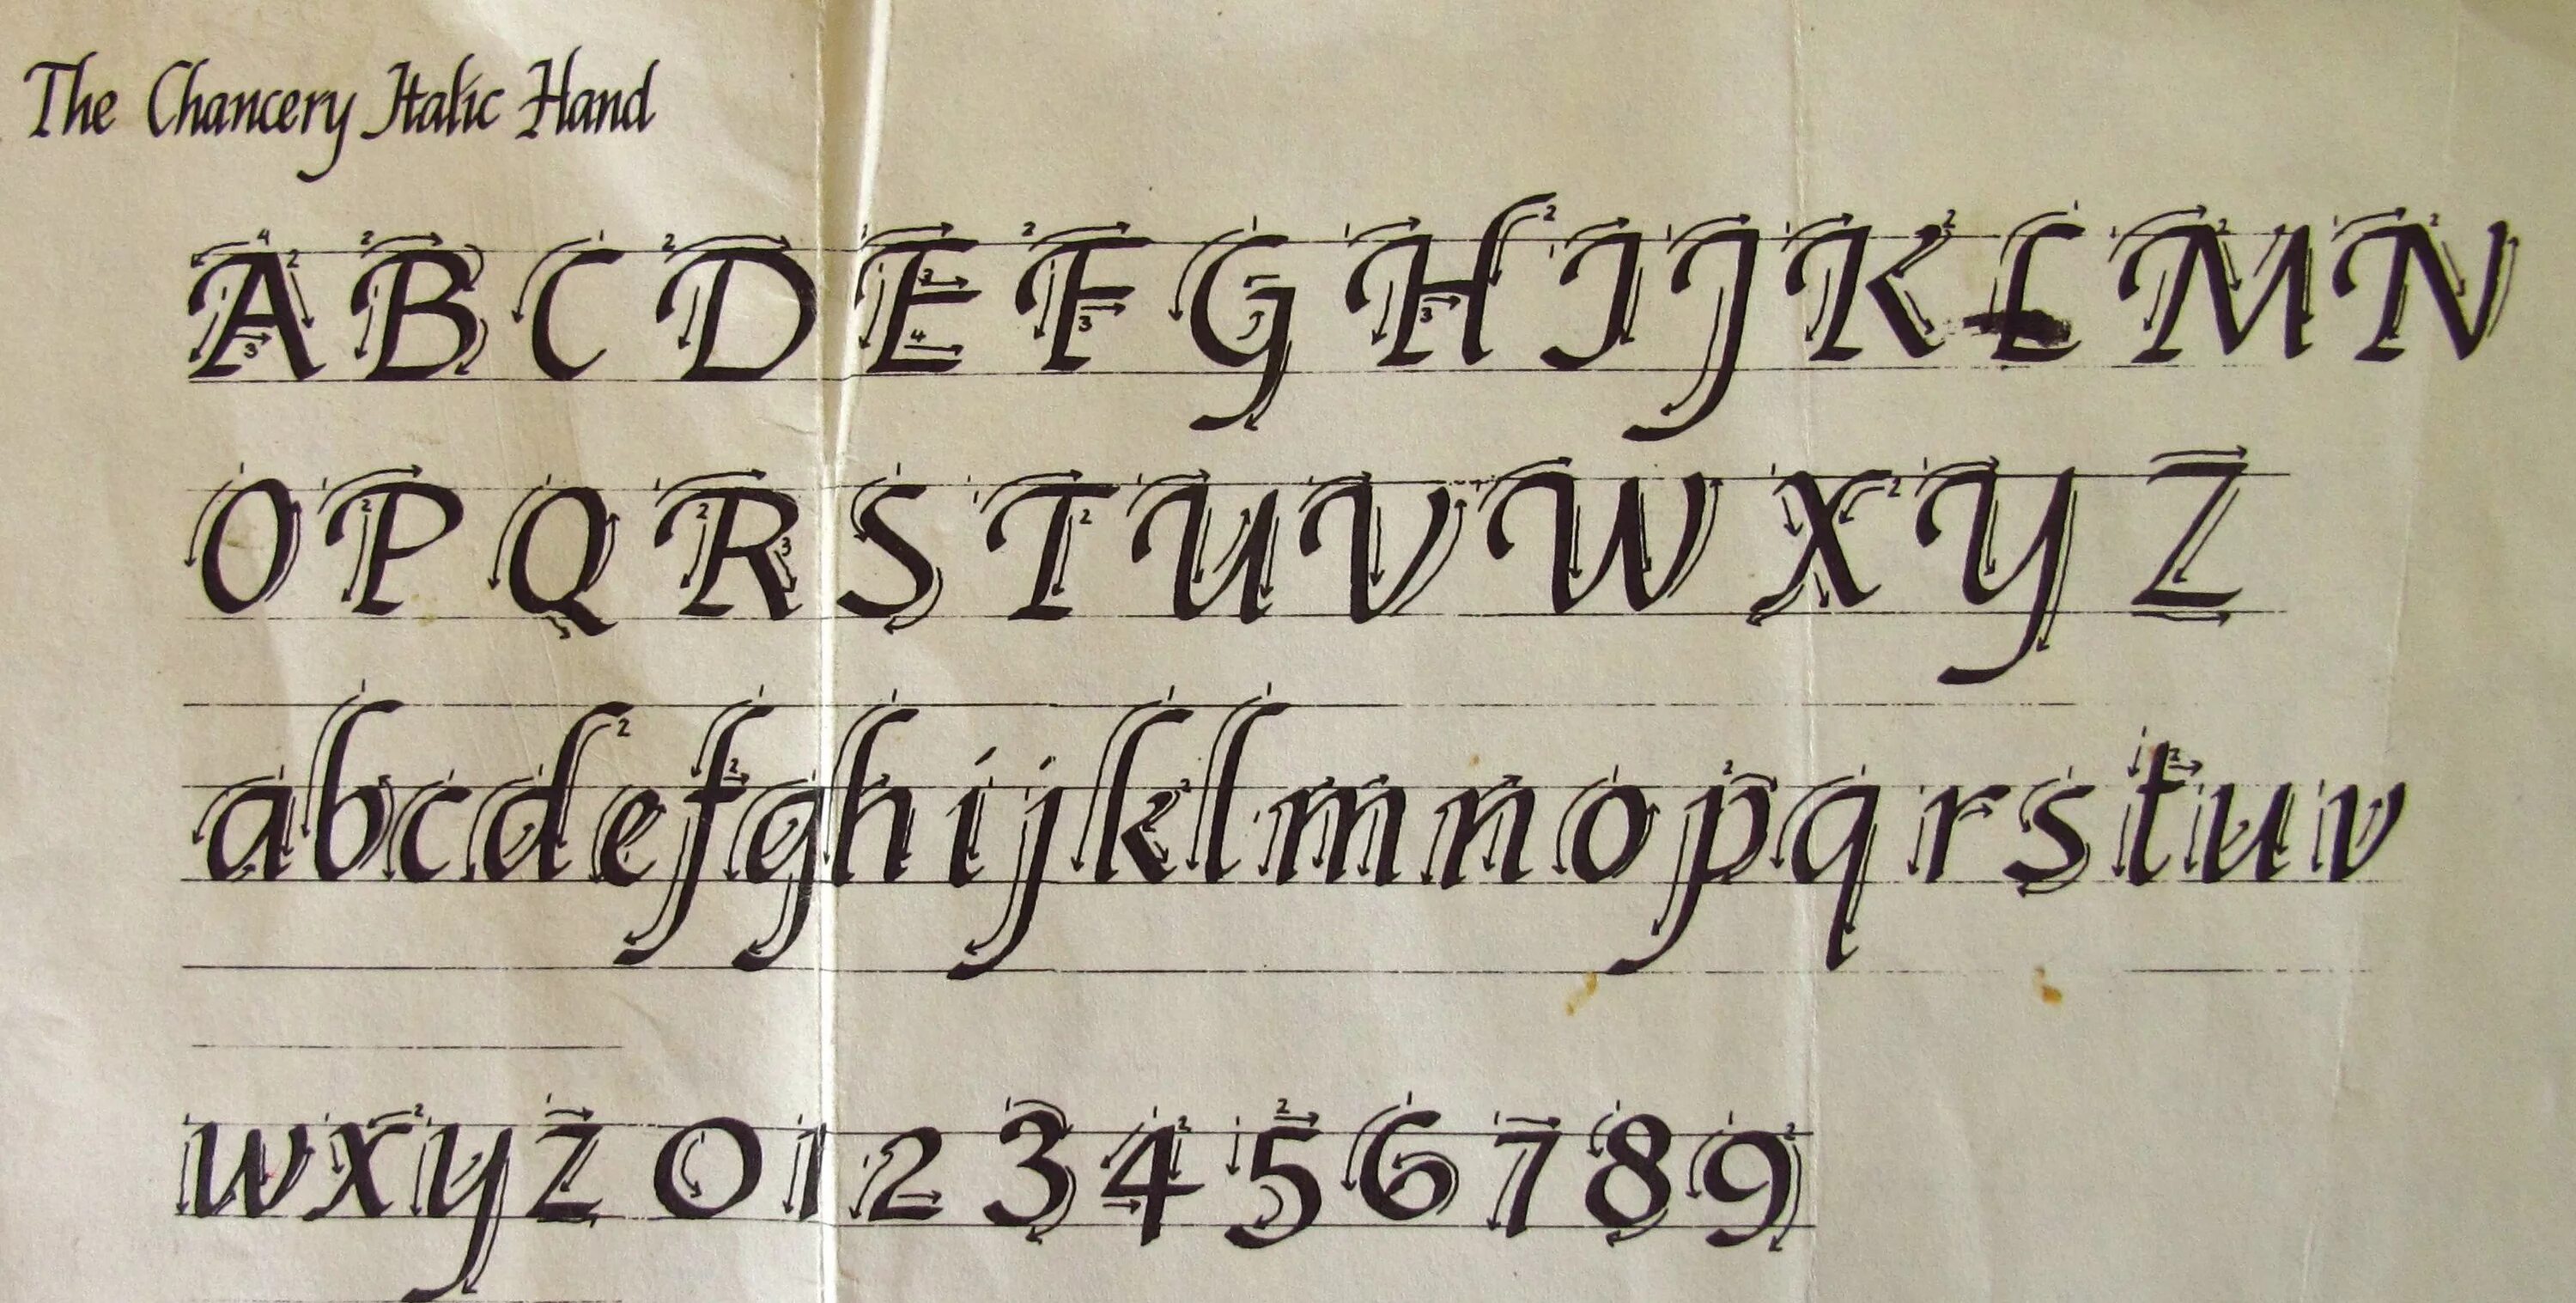 The Chancery Italic Hand
A B C D E F G H I J K L M N
O P Q R S T U V W X Y Z
a b c d e f g h i j k l m n o p q r s t u v
w x y z 0 1 2 3 4 5 6 7 8 9